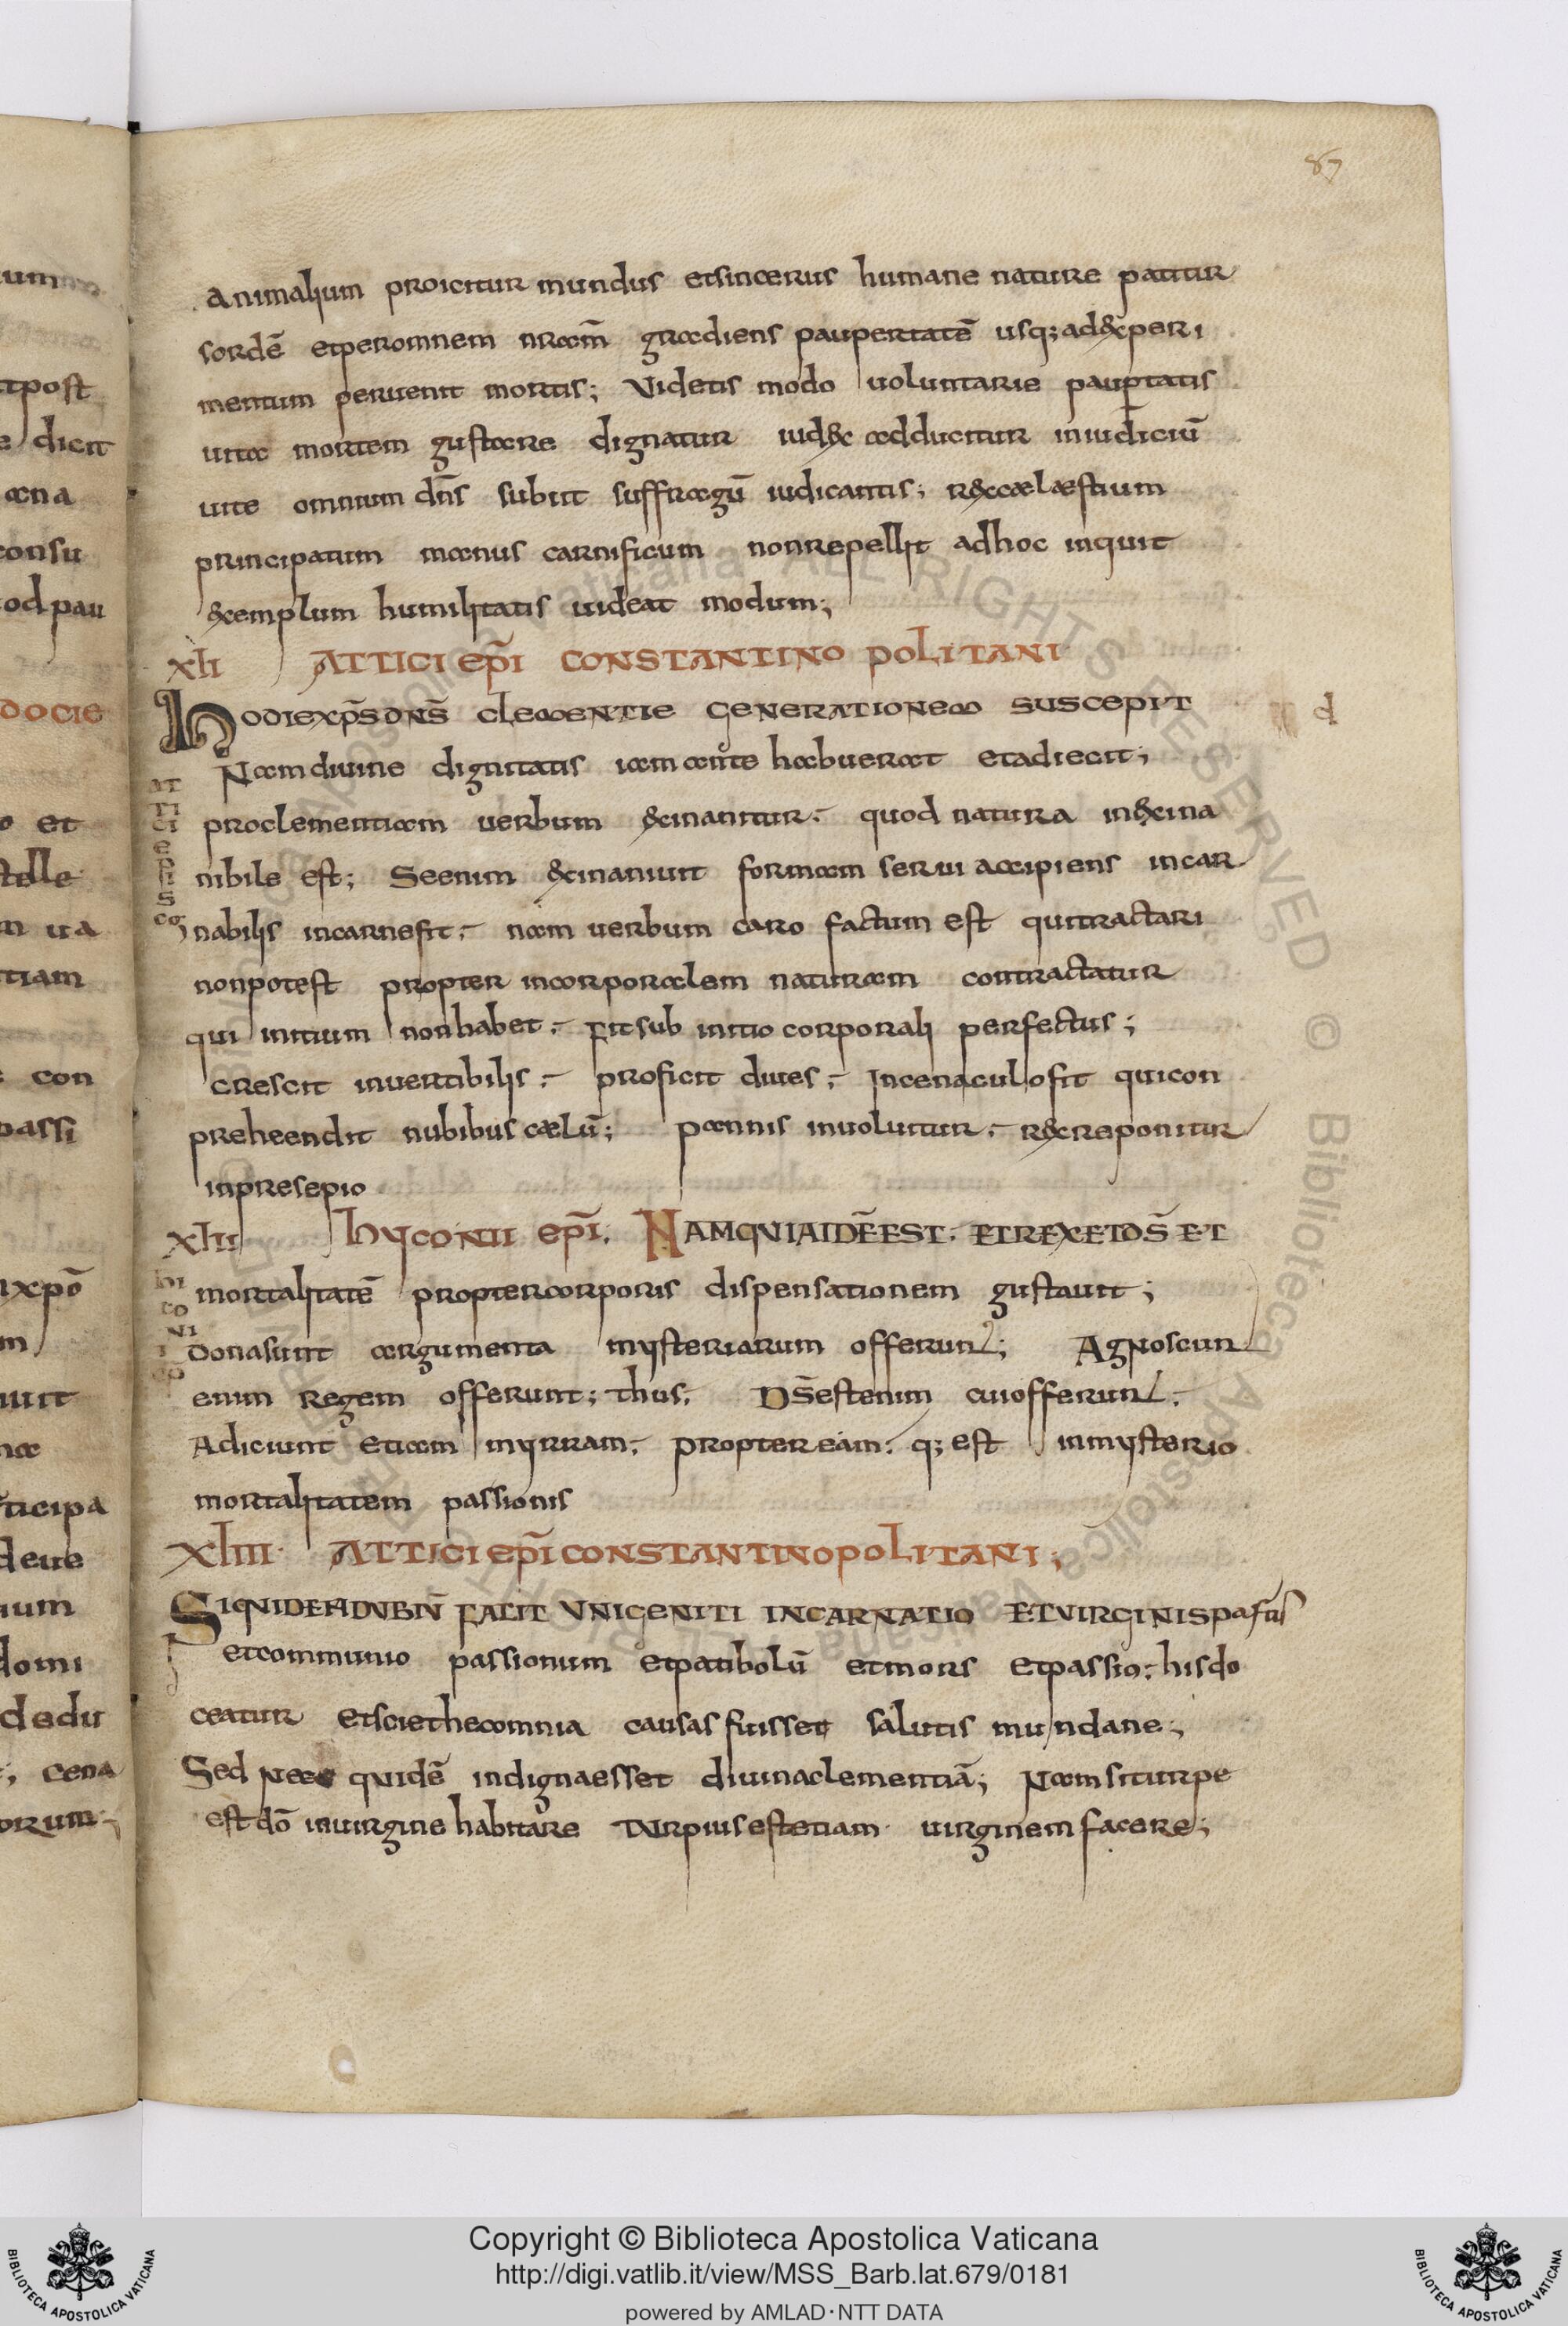 87
animalium proicitur mundus etsincerus humane nature patitur
sordē etperomnem nram̄ gradiens paupertatē usq; adexperi
mentum peruenit mortis; Videtis modo uoluntarie paup̄tatis
uita mortem gustare dignatur iudex adducitur iniudiciū
uite omnium dn̄s subiit suffragū iudicantis; rexcælæstium
principatum manus carnificum nonrepellit adhoc inquit
exemplum humilitatis uideat modum;
xli ATTICI ep̄i CONSTANTINO POLITANI
hODIEXP̄S DN̄S CLEMENTIE GENERATIONEM SUSCEPIT
d
Namdiuine dignitatis iam ante habuerat etadiecit;
proclementiam uerbum exinanitur. quod natura inexina
nibile est; Seenim exinaniuit formam serui accipiens incar
nabilis incarnefit. nam uerbum caro factum est quitractari
nonpotest propter incorporalem naturam contractatur
qui initium nonhabet. Fitsub initio corporali perfectus;
crescit inuertibilis. proficit diues. Incenaculofit quicon
preheendit nubibus cælū; pannis inuoluitur. rexreponitur
inpresepio
AT
TI
CI
e
pi
s
co
xlii hyconii ep̄i. NAMQVIAIDĒEST. ETREXETDS̄ ET
mortalitatē proptercorporis dispensationem gustauit;
Donasunt argumenta mysteriarum offerunt; Agnoscunt
enim Regem offerunt; thus. DS̄estenim cuiofferunt.
Adiciunt etiam myrram. propteream. q; est inmysterio
mortalitatem passionis
hi
co
NI
i
ep
xliii. ATTICI ep̄i CONSTANTINOPOLITANI;
SIQVIDEM DVBIŪ FACIT VNIGENITI INCARNATIO ETVIRGINISpartus
etcommunio passionum etpatibolū etmors etpassio. hisdo
ceatur etsciethecomnia causas fuisset salutis mundane;
Sed nec quidē indignaesset diuinaclementiā; Namsiturpe
est dō inuirgine habitare turpiusestetiam uirginem facere;
Copyright © Biblioteca Apostolica Vaticana
http://digi.vatlib.it/view/MSS_Barb.lat.679/0181
powered by AMLAD·NTT DATA
BIBLIOTECA APOSTOLICA VATICANA
BIBLIOTECA APOSTOLICA VATICANA